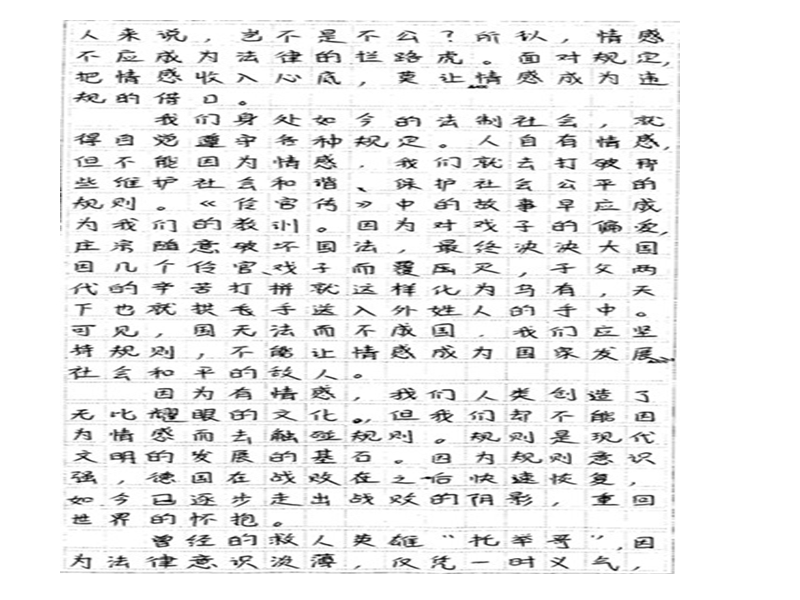 人来说，岂不是不公？所以，情感
不应成为法律的拦路虎。面对规定，
把情感收入心底，莫让情感成为违
规的借口。
我们身处如今的法制社会，就
得自觉遵守各种规定。人自有情感，
但不能因为情感，我们就去打破那
些维护社会和谐、保护社会公平的
规则。《伶官传》中的故事早应成
为我们的教训。因为对戏子的偏爱，
庄宗随意破坏国法，最终泱泱大国
因几个伶官、戏子而覆压灭，子父两
代的辛苦打拼就这样化为乌有，天
下也就拱毛手送入外姓人的手中。
可见，国无法而不成国，我们应坚
持规则，不能让情感成为国家发展
社会和平的敌人。
因为有情感，我们人类创造了
无比耀眼的文化。，但我们却不能因
为情感而去触碰规则。规则是现代
文明的发展的基石。因为规则意识
强，德国在战败在之后快速恢复，
如今已逐步走出战败的阴影，重回
世界的怀抱。
曾经的救人英雄“托举哥”，因
为法律意识淡薄，仅凭一时义气，